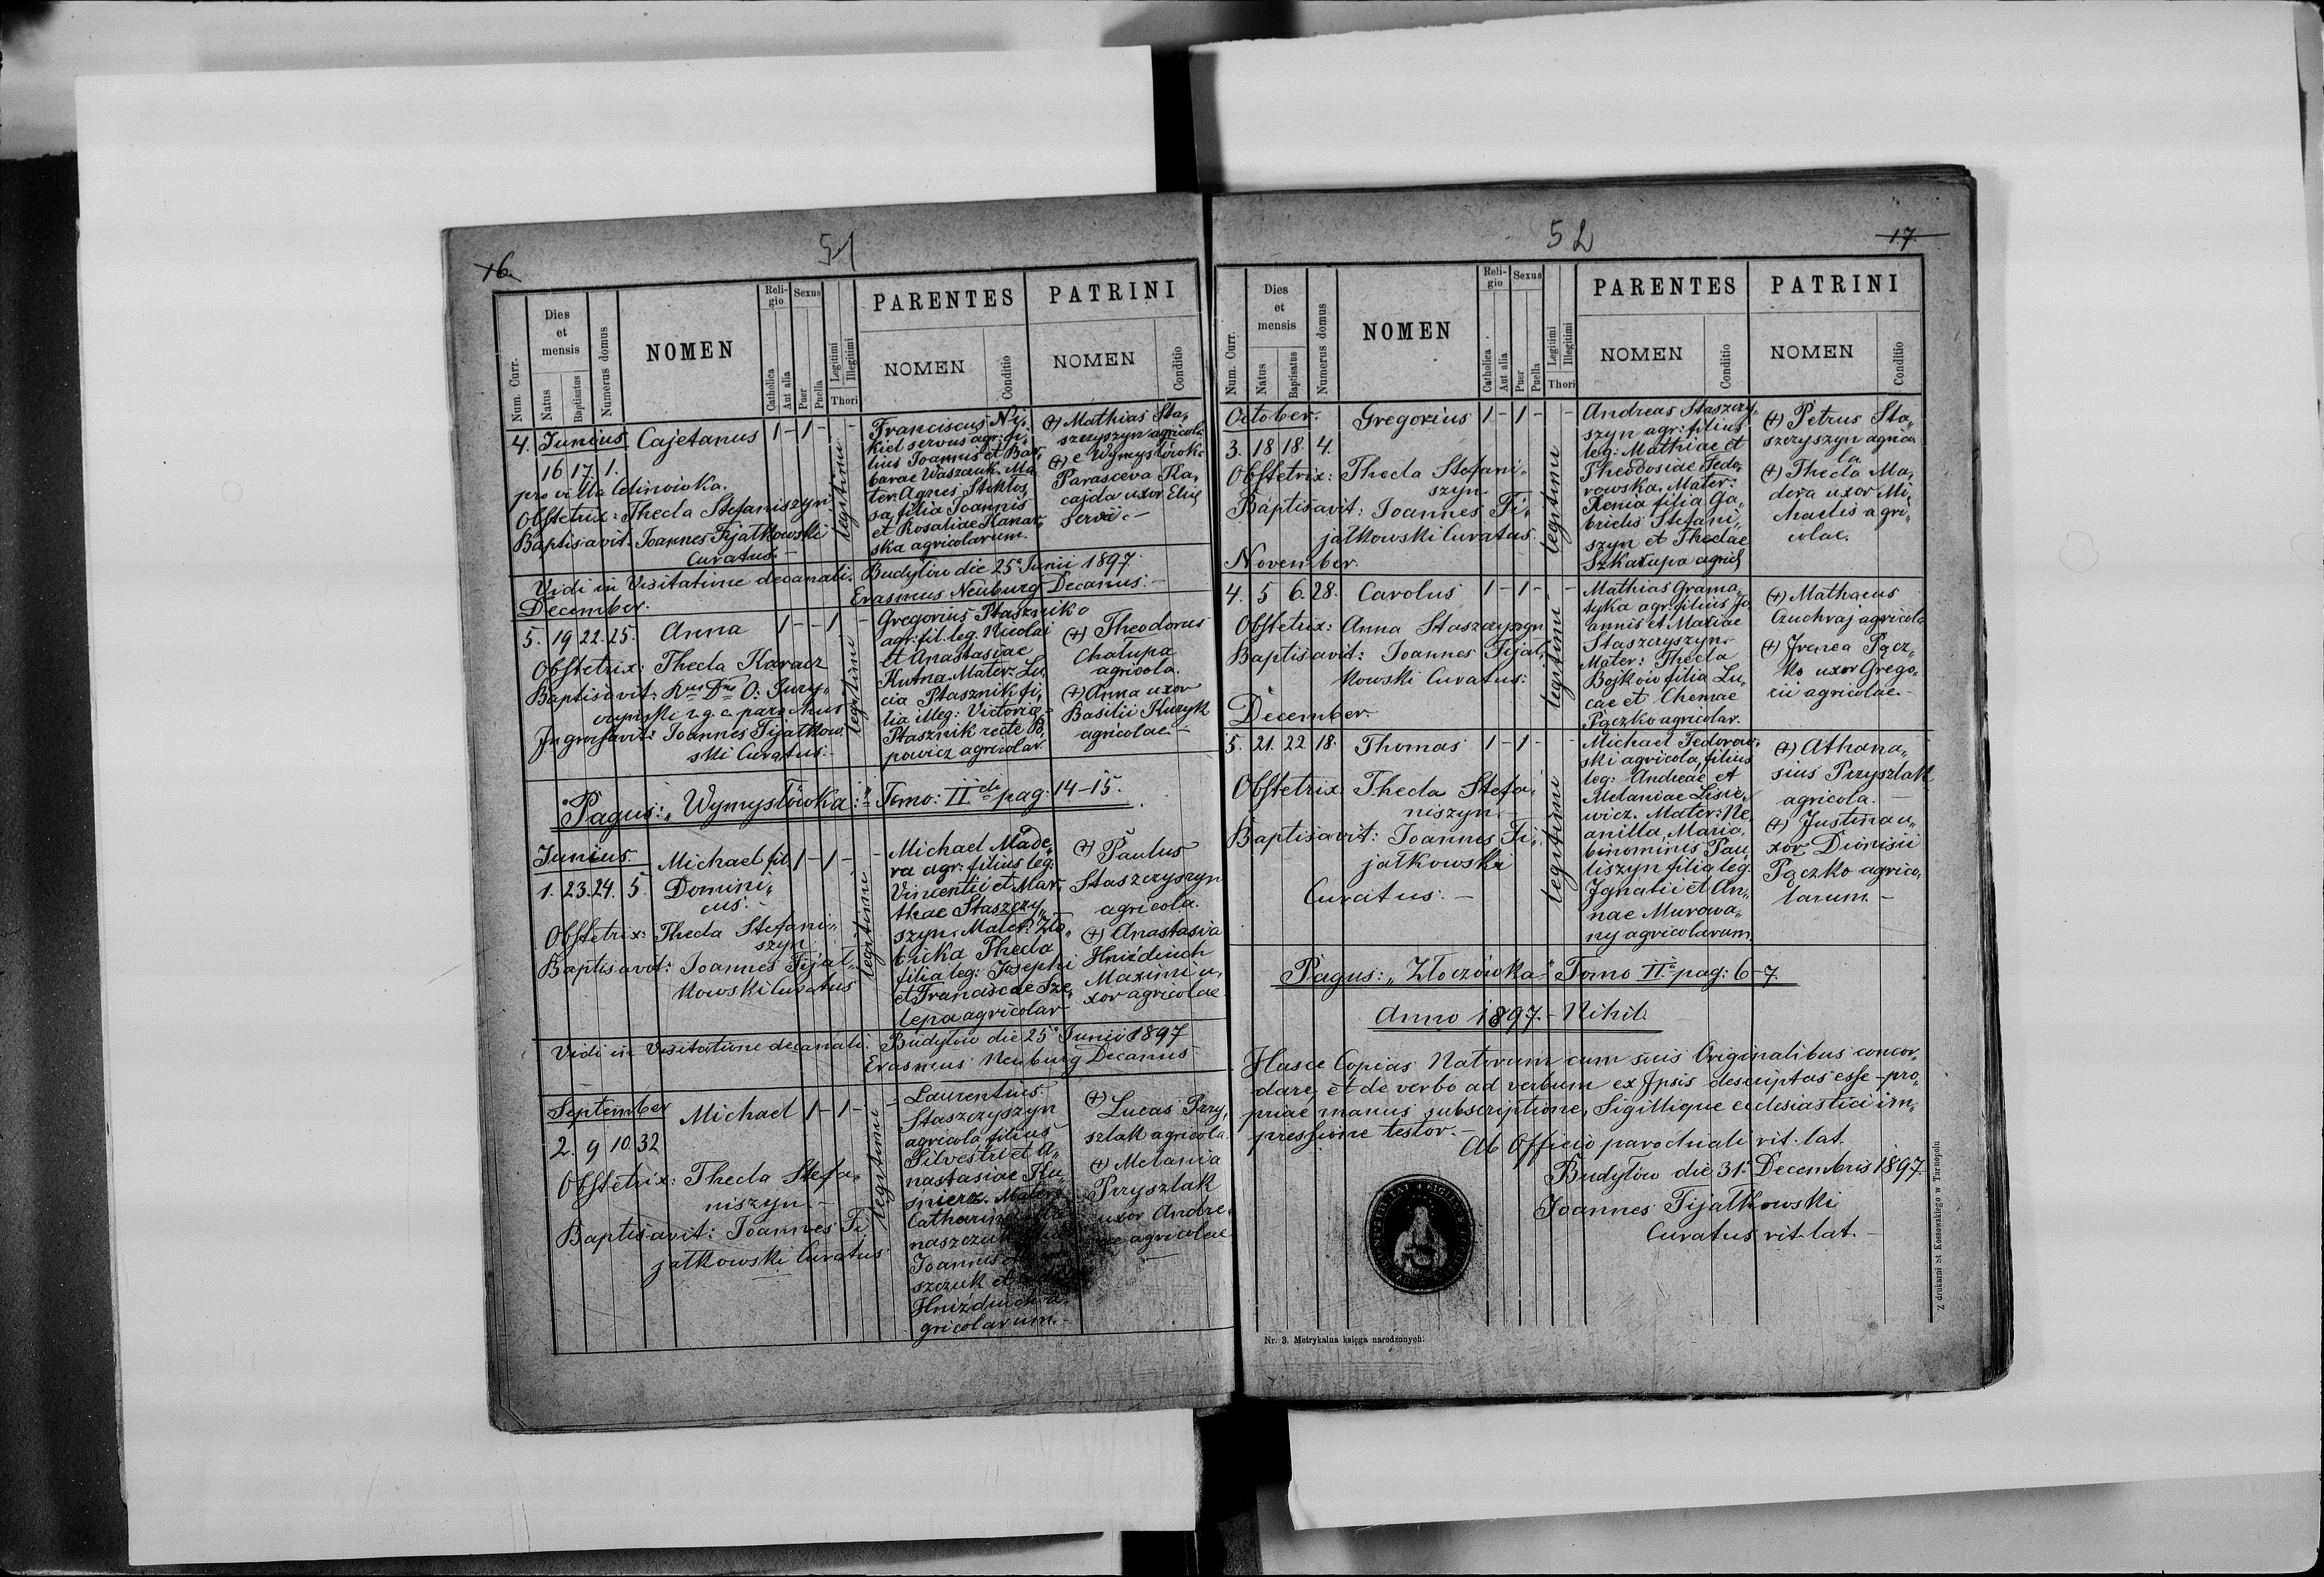 16.
51
Num. Curr.
Dies et mensis
Natus
Baptisatus
Numerus domus
NOMEN
Religio
Catholica
Aut alia
Sexus
Puer
Puella
Legitimi
Illegitimi
Thori
PARENTES
NOMEN
Conditio
PATRINI
NOMEN
Conditio
4. Junius Cajetanus 1 - 1 - -
16 17 1.
pro villa
Obstetrix: Thecla Stefaniszyn
Baptisavit: Joannes Fijałkowski
Curatus. -
legitimi
Franciscus Ni„
kiel servus agr. fi„
lius Joannis et Bar„
barae Waszczuk. Ma„
ter: Agnes Stokło„
sa filia Joannis
et Rosaliae Kanar„
ska agricolarum.
(+) Mathias Sta„
szczyszyn agricola
(+) e Wymysłówka
Parasceva Ka„
cajda uxor Eliae
servi. -
Vidi in Visitatione decanali. Budyłów die 25° Junii 1897.
Erasmus Neuburg Decanus. -
December.
5. 19 22. 25. Anna 1 - - 1 -
Obstetrix: Thecla Karacz
Baptisavit: Rnus Dnus O:
r. g. c. parochus
Ingrossavit: Joannes Fijałkow„
ski Curatus. -
legitimi
Gregorius Ptasznik
agr: fil. leg. Nicolai
et Anastasiae
Kutna. Mater: Lu„
cia Ptasznik fi„
lia illeg: Victoriae
Ptasznik recte Po„
powicz agricolar.
(+) Theodorus
Chałupa
agricola.
(+) Anna uxor
Basilii
agricolae. -
Pagus: „Wymysłówka“: Tomo: II do pag: 14-15.
Junius.
1. 23. 24. 5. Michael fil. 1 - 1 - -
Domini„
cus. -
Obstetrix: Thecla Stefani„
szyn
Baptisavit: Joannes Fijał„
kowski Curatus
legitimi
Michael Made„
ra agr: filius leg:
Vincentii et Mar„
thae Staszczy„
szyn. Mater: Zło„
bicka Thecla
filia leg: Josephi
et Franciscae Sze„
lepa agricolar
(+) Paulus
Staszczyszyn
agricola.
(+) Anastasia
Hnizdiuch
Maximi u„
xor agricolae
Vidi in Visitatione decanali. Budyłów die 25° Junii 1897
Erasmus Neuburg Decanus
September
2. 9 10. 32 Michael 1 - 1 - -
Obstetrix: Thecla Stefa„
niszyn. -
Baptisavit: Joannes Fi„
jałkowski Curatus
legitimi
Laurentius
Staszczyszyn
agricola filius
Silvestri et A„
nastasiae Ku„
śnierz. Mater:
Joannis
szczuk et
Hnizdiuch a„
gricolarum. -
(+)
Lucas Przy„
szlak agricola.
(+) Melania
Przyszlak
uxor Andre„
ae agricolae
52
17.
Num. Curr.
Dies et mensis
Natus
Baptisatus
Numerus domus
NOMEN
Religio
Catholica
Aut alia
Sexus
Puer
Puella
Legitimi
Illegitimi
Thori
PARENTES
NOMEN
Conditio
PATRINI
NOMEN
Conditio
October. Gregorius 1 - 1 - -
3. 18 18. 4.
Obstetrix: Thecla Stefani„
szyn
Baptisavit: Joannes Fi„
jałkowski Curatus.
legitimi
Andreas Staszczy„
szyn agr: filius
leg: Mathiae et
Theodosiae Fedo„
rowska. Mater:
Xenia filia Ga„
brielis Stefani„
szyn et Theclae
Szkałupa agricol
(+) Petrus Sta„
szczyszyn agrico„
la
(+) Thecla Ma„
dera uxor Mi„
chaelis agri„
colae.
November.
4. 5 6. 28. Carolus 1 - 1 - -
Obstetrix: Anna Staszczyszyn
Baptisavit: Joannes Fijał„
kowski Curatus:
legitimi
Mathias Grama„
tyka agr: filius Jo„
annis et Mariae
Staszczyszyn. -
Mater: Thecla
Bojków filia Lu„
cae et Chemae
Pączko agricolar.
(+) Mathaeus
Czuchraj agricola
(+) Irenea Pącz„
ko uxor Grego„
rii agricolae. -
December.
5. 21. 22 18. Thomas 1 - 1 - -
Obstetrix: Thecla Stefa„
niszyn -
Baptisavit: Joannes Fi„
jałkowski
Curatus. -
legitimi
Michael Fedorow„
ski agricola, filius
leg: Andreae et
Melaniae Lisie„
wicz. Mater: Ne„
anilla, Maria,
binominis Pau„
liszyn filia leg:
Ignatii et An„
nae Murowa„
ny agricolarum
(+) Athana„
sius Przyszlak
agricola. -
(+) Justina u„
xor Dionisii
Pączko agrico„
larum. -
Pagus: „Złoczówka“ Tomo II° pag: 6-7.
Anno 1897. - Nihil.
Hasce Copias Natorum cum suis Originalibus concor„
dare, et de verbo ad verbum ex Ipsis descriptas esse - pro„
priae manus subscriptione, Sigillique ecclesiastici im„
pressione testor. -
Ab Officio parochiali rit. lat.
Budyłów die 31. Decembris 1897.
Joannes Fijałkowski
Curatus rit. lat. -
Nr. 3. Metrykalna księga narodzonych.
Z drukarni St Kossowskiego w Tarnopolu